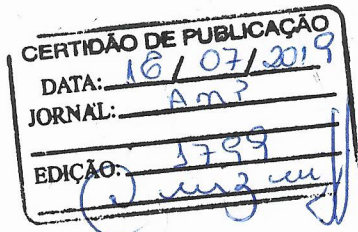 CERTIDÃO DE PUBLICAÇÃO
DATA: 16/07/2019
JORNAL: Am?
EDIÇÃO: 1799